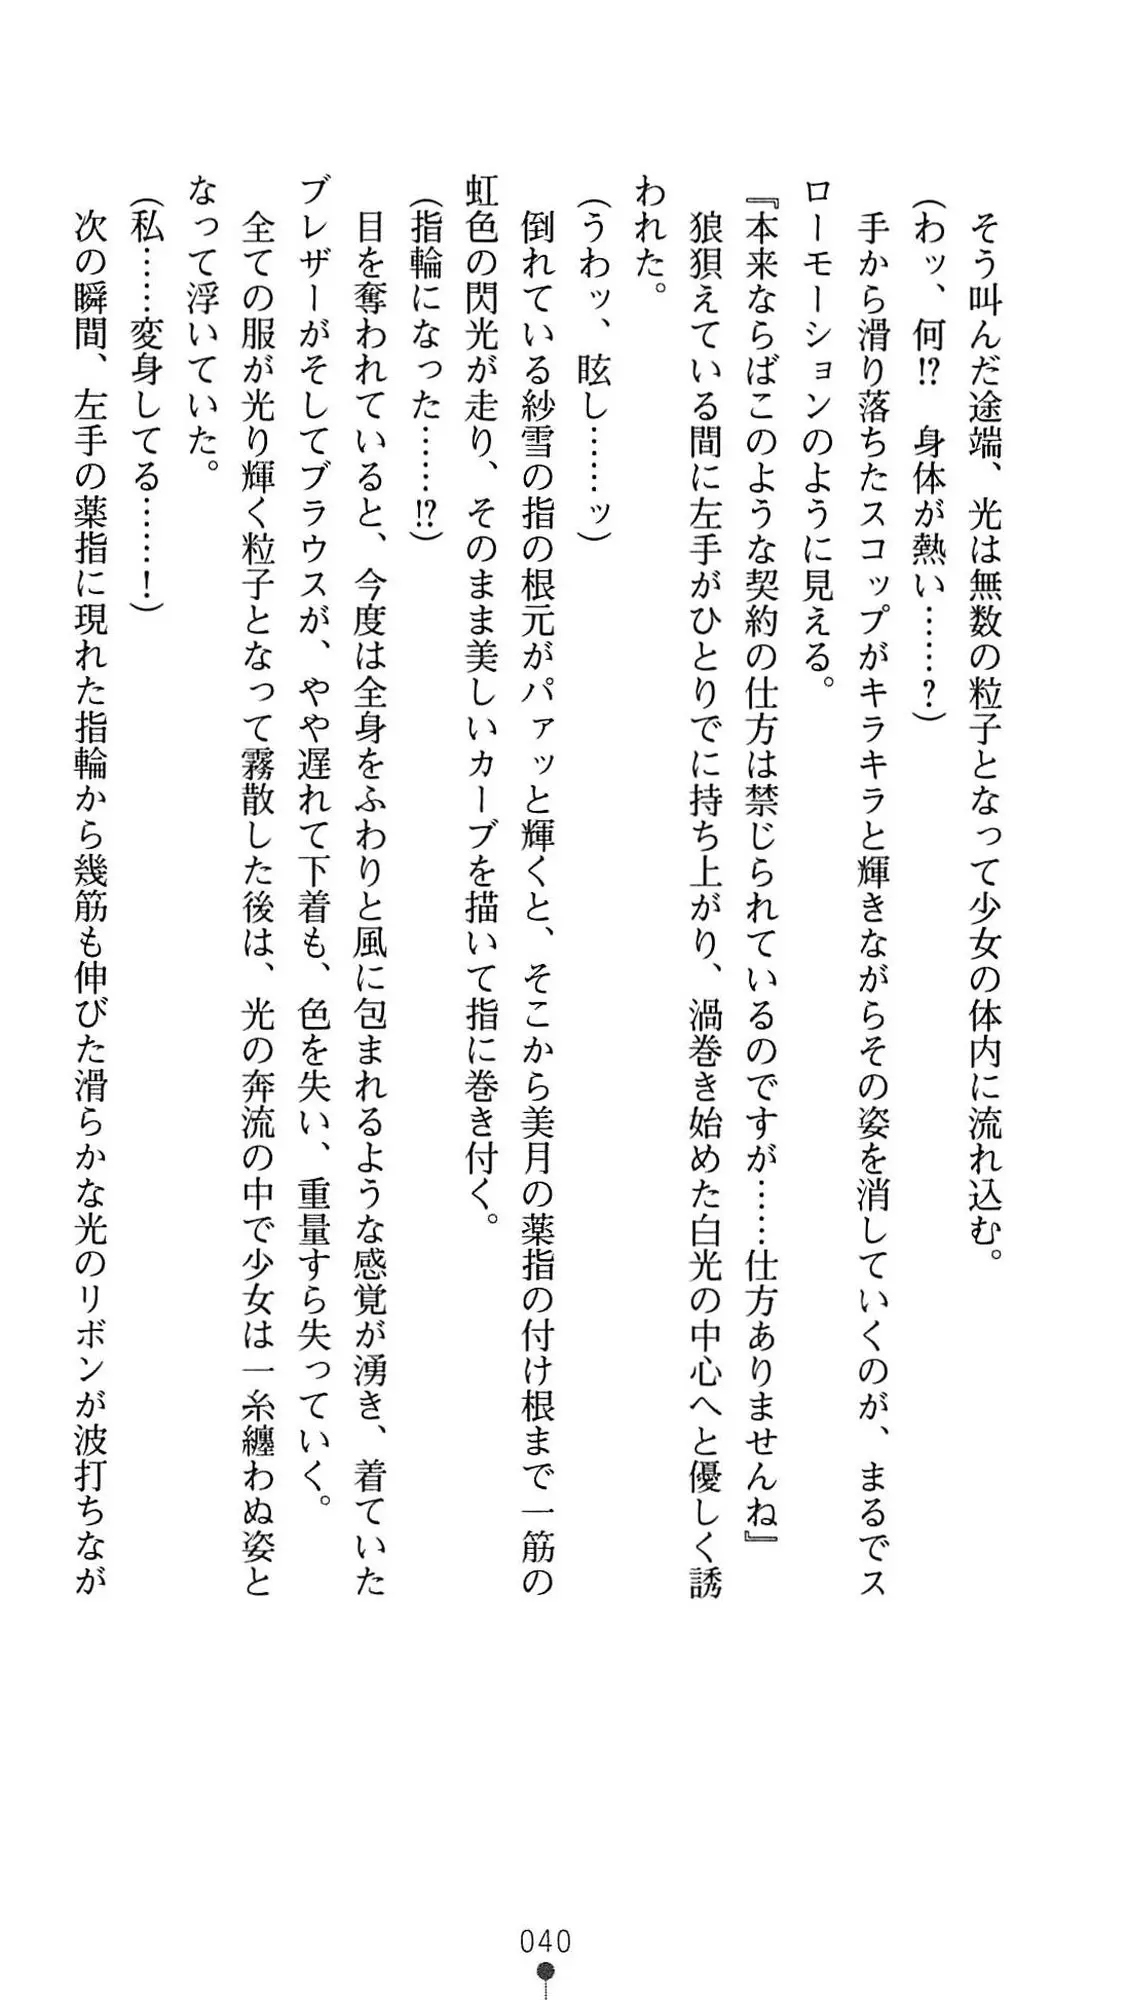 そう叫んだ途端、光は無数の粒子となって少女の体内に流れ込む。
(わッ、何!?　身体が熱い……?)
手から滑り落ちたスコップがキラキラと輝きながらその姿を消していくのが、まるでス
ローモーションのように見える。
『本来ならばこのような契約の仕方は禁じられているのですが……仕方ありませんね』
狼狽えている間に左手がひとりでに持ち上がり、渦巻き始めた白光の中心へと優しく誘
われた。
(うわッ、眩し……ッ)
倒れている紗雪の指の根元がパァッと輝くと、そこから美月の薬指の付け根まで一筋の
虹色の閃光が走り、そのまま美しいカーブを描いて指に巻き付く。
(指輪になった……!?)
目を奪われていると、今度は全身をふわりと風に包まれるような感覚が湧き、着ていた
ブレザーがそしてブラウスが、やや遅れて下着も、色を失い、重量すら失っていく。
全ての服が光り輝く粒子となって霧散した後は、光の奔流の中で少女は一糸纏わぬ姿と
なって浮いていた。
(私……変身してる……!)
次の瞬間、左手の薬指に現れた指輪から幾筋も伸びた滑らかな光のリボンが波打ちなが
040